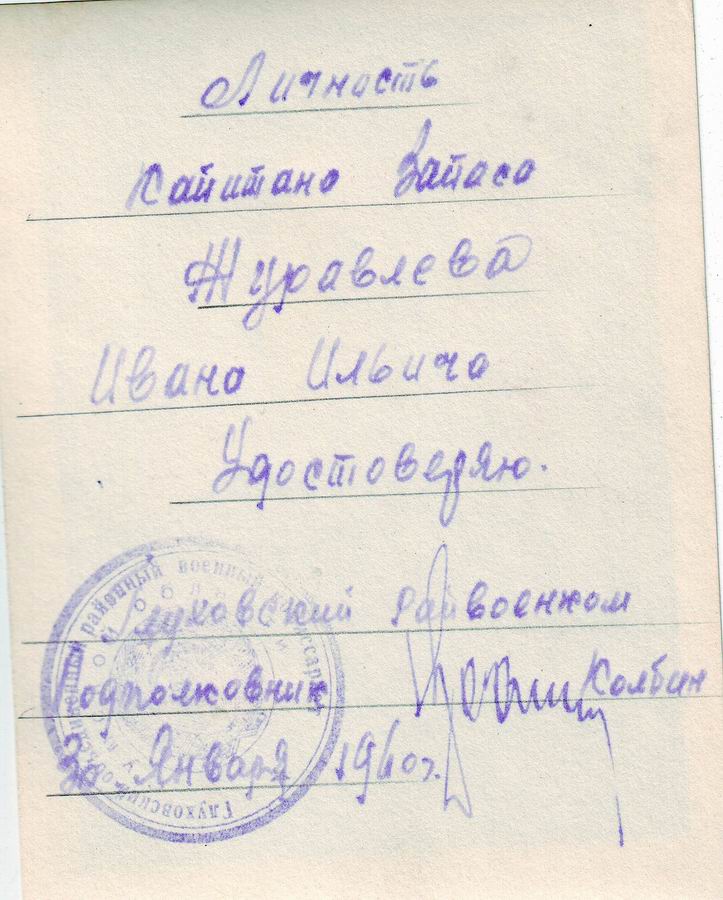 Личность
Капитана Запаса
Журавлева
Ивана Ильича
Удостоверяю.
Глуховский Райвоенком
Подполковник Колбин
30 Января 1960 г.
районный военный
Глуховский